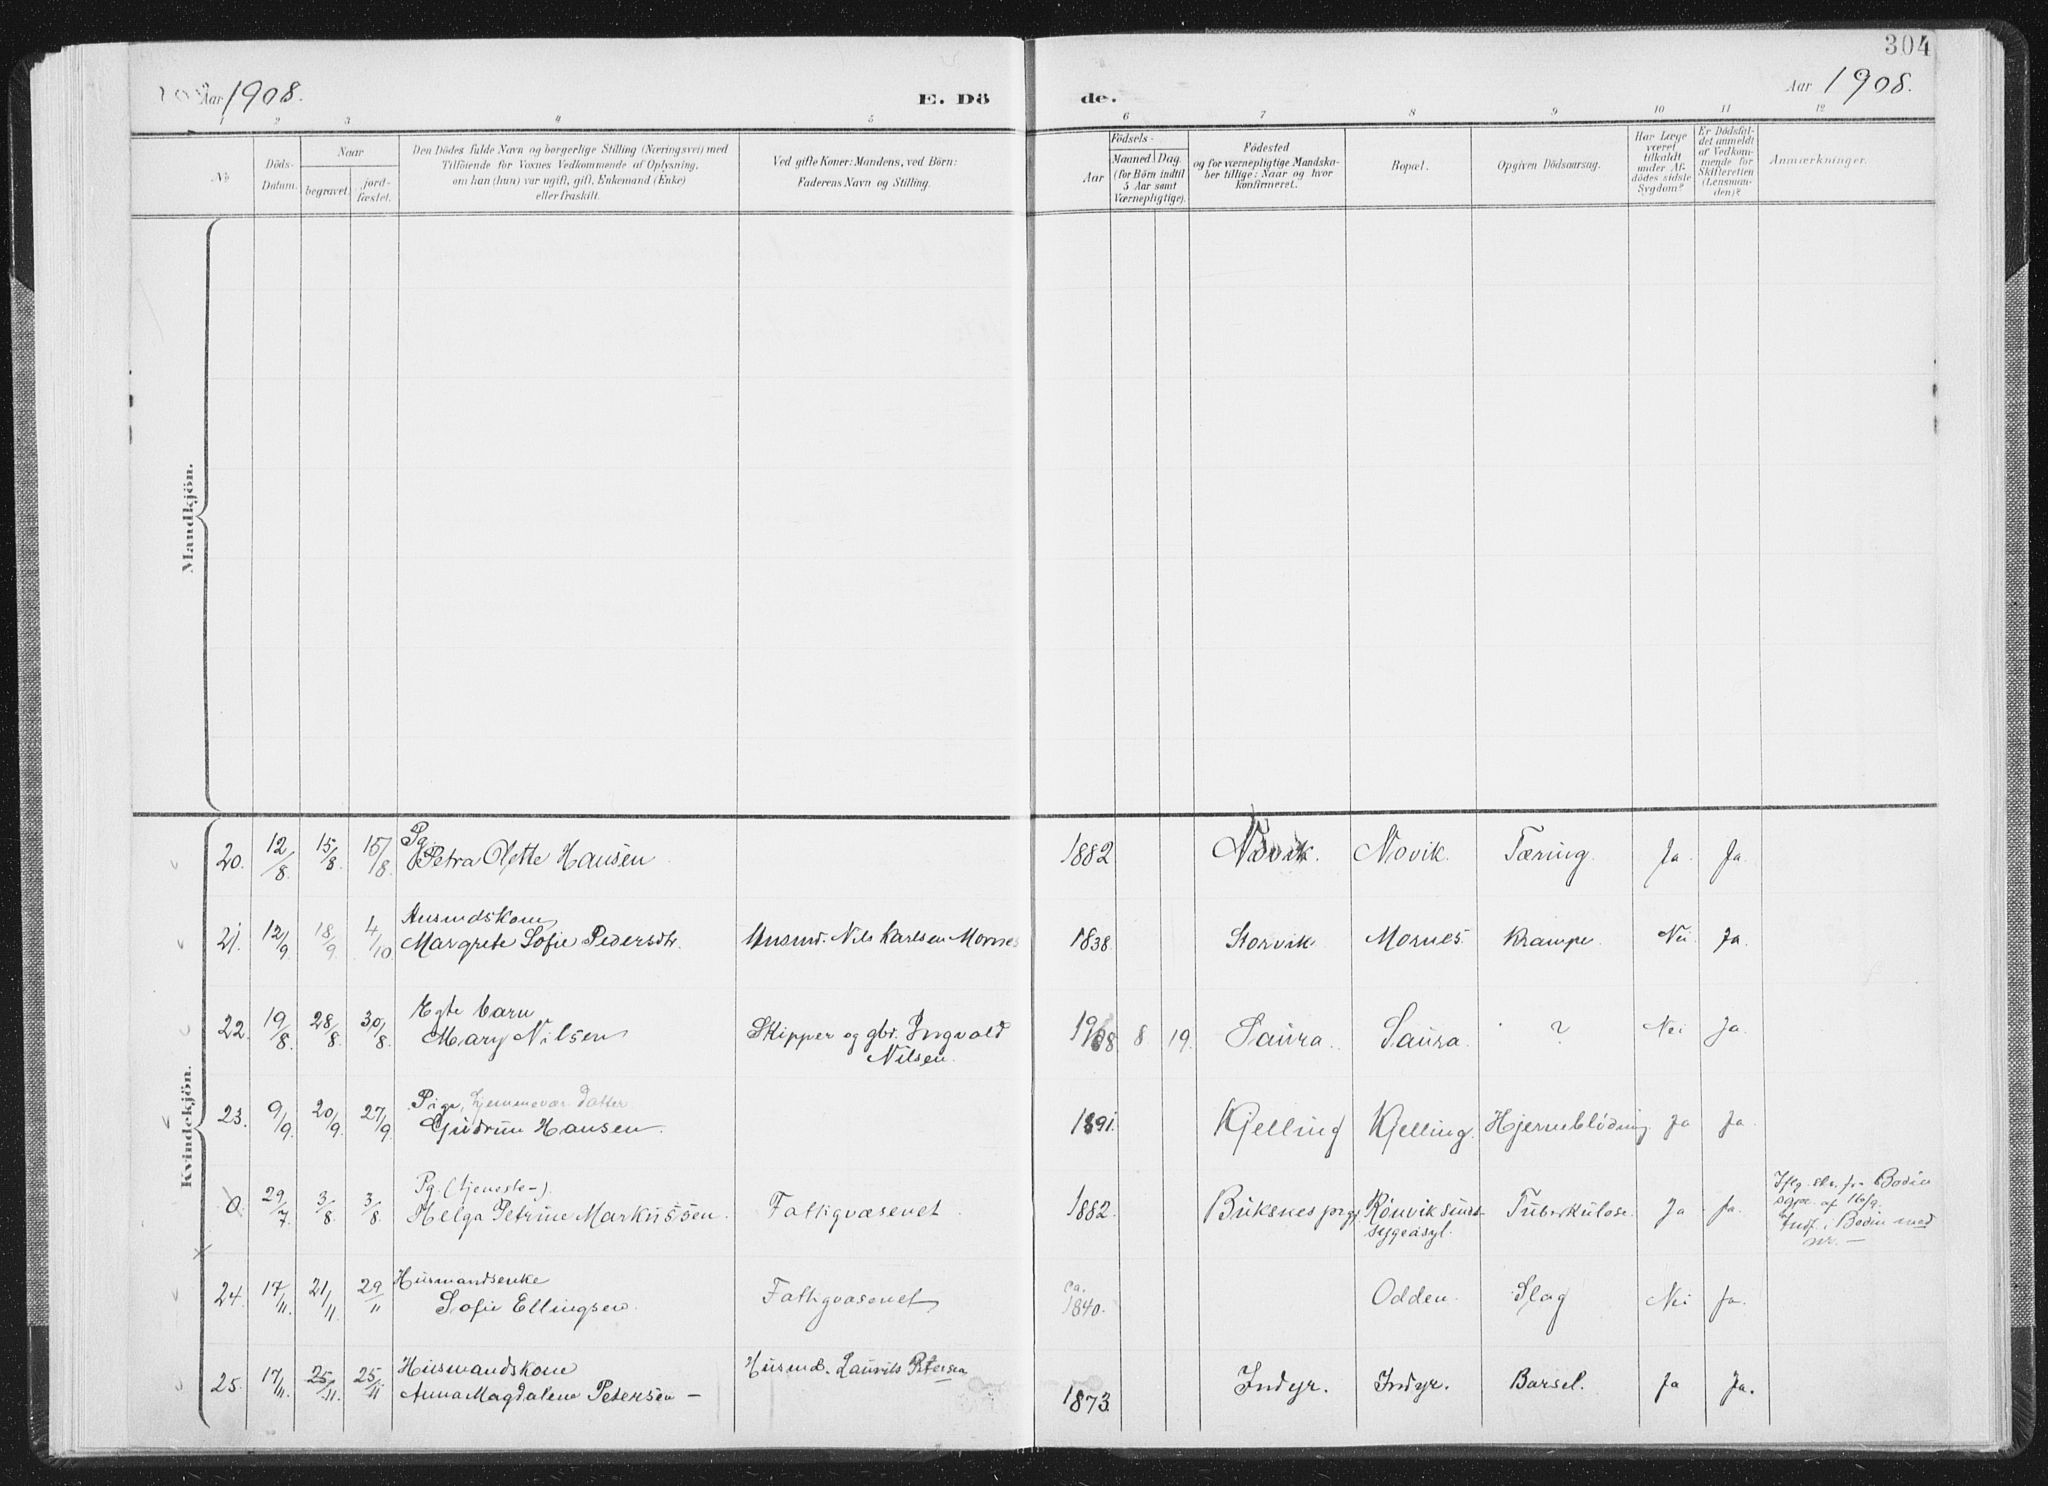 304
Aar 1908.
E. Dö
de.
Aar 1908.
1 2 3 4 5 6 7 8 9 10 11 12
No
Döds-Datum.
Naar
begravet.
jord-fæstet.
Den Dödes fulde Navn og borgerlige Stilling (Næringsvei) med
Tilföiende for Voxnes Vedkommende af Oplysning,
om han (hun) var ugift, gift, Enkemand (Enke)
eller fraskilt.
Ved gifte Koner: Mandens, ved Börn:
Faderens Navn og Stilling.
Födsels-
Aar
Maaned Dag
(for Börn indtil
5 Aar samt
Værnepligtige).
Födested
og for værnepligtige Mandska-
ber tillige: Naar og hvor
konfirmeret.
Bopæl.
Opgiven Dödsaarsag.
Har Læge
været
tilkaldt
under Af-
dödes sidste
Sygdom?
Er Dödsfal-
det anmeldt
af Vedkom-
mende for
Skifteretten
(Lensman-
den)?
Anmærkninger.
Mandkjön.
Kvindekjön.
20. 12/8. 15/8. 15/8. Pg. Petra Olette Hansen 1882 Novik. Novik. Tæring. Ja. Ja.
21. 12/9 18/9. 4/10 Husmdskone
Margrete Sofie Pedersdtr. Husmd. Nils Karlsen Mornes 1838. Storvik. Mornes. Krampe. Nei Ja.
22. 19/8. 28/8. 30/8. Egte barn
Mary Nilsen Skipper og gbr. Ingvald
Nilsen. 1908 8 19. Saura. Saura. ? Nei Ja.
23. 9/9. 20/9. 27/9 Pige, hjemmevær. datter
Gudrun Hansen. 1891. Kjelling Kjelling. Hjerneblödning. Ja Ja.
0. 29/7. 3/8. 3/8. Pg. (tjeneste-).
Helga Petrine Markussen. Fattigvæsenet. 1882. Buksnes prgj. Rönvik sinds-
sygeasyl. Tuberkulose. Ja Ja.
Iflg. skr. fra Bodin
sgpr. af 16/9.
Indf. i Bodin med
nr. —
24. 17/11. 21/11. 29/11 Husmandsenke
Sofie Ellingsen. Fattigvæsenet ca.
1840. Odden. Slag Nei Ja.
25. 17/11. 25/11. 25/11 Husmandskone
Anna Magdalene Petersen – Husmd. Laurits Petersen 1873. Indyr. Indyr. Barsel. Ja Ja.